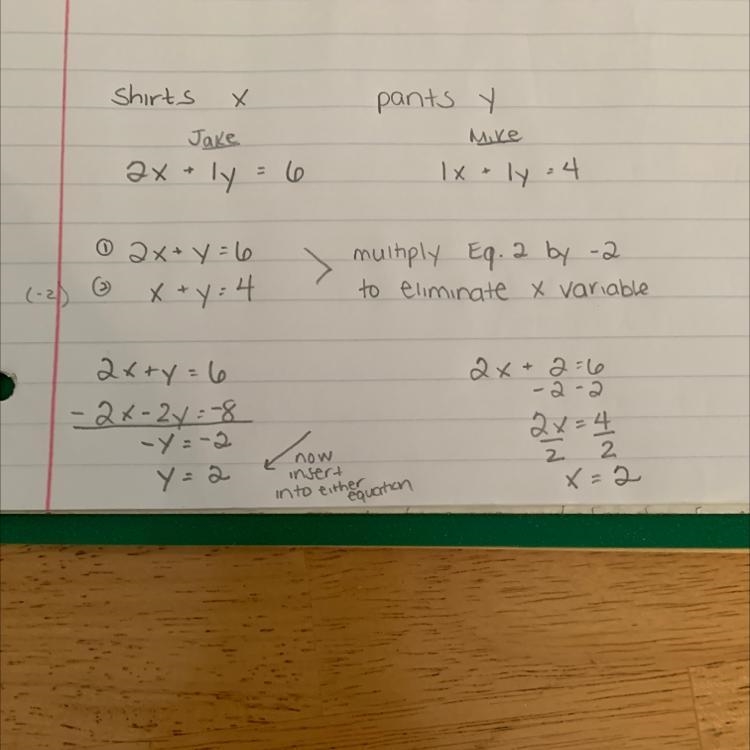 Shirts x pants y
Jake Mike
2x + 1y = 6 1x + 1y = 4
① 2x + y = 6 > multiply Eq. 2 by -2
(-2) ② x + y = 4 to eliminate x variable
2x + y = 6
- 2x - 2y = -8
-y = -2
y = 2
now
insert
into either
equation
2x + 2 = 6
-2 -2
2x = 4
2 2
x = 2